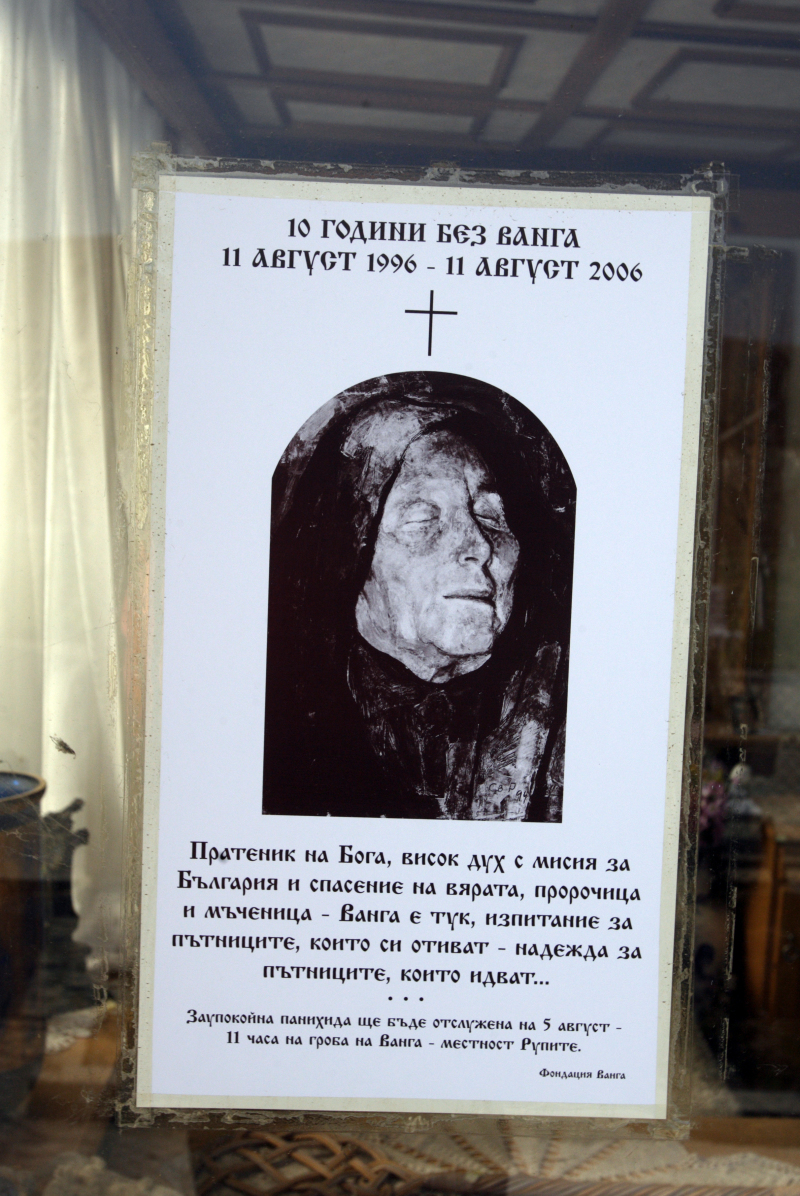 10 ГОДИНИ БЕЗ ВАНГА
11 АВГУСТ 1996 - 11 АВГУСТ 2006
Пратеник на Бога, висок дух с мисия за
България и спасение на вярата, пророчица
и мъченица - Ванга е тук, изпитание за
пътниците, които си отиват - надежда за
пътниците, които идват...
• • •
Заупокойна панихида ще бъде отслужена на 5 август -
11 часа на гроба на Ванга - местност Рупите.
Фондация Ванга